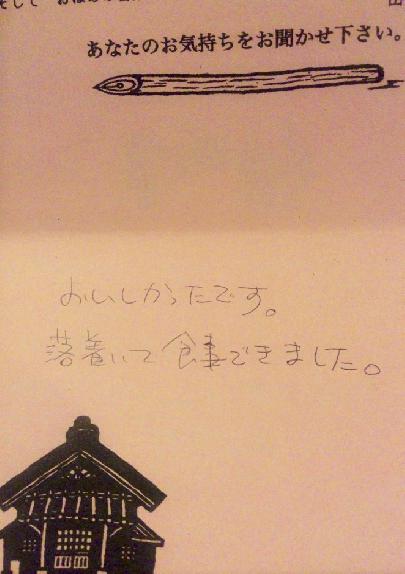 あなたのお気持ちをお聞かせ下さい。
おいしかったです。
落着いて食事できました。